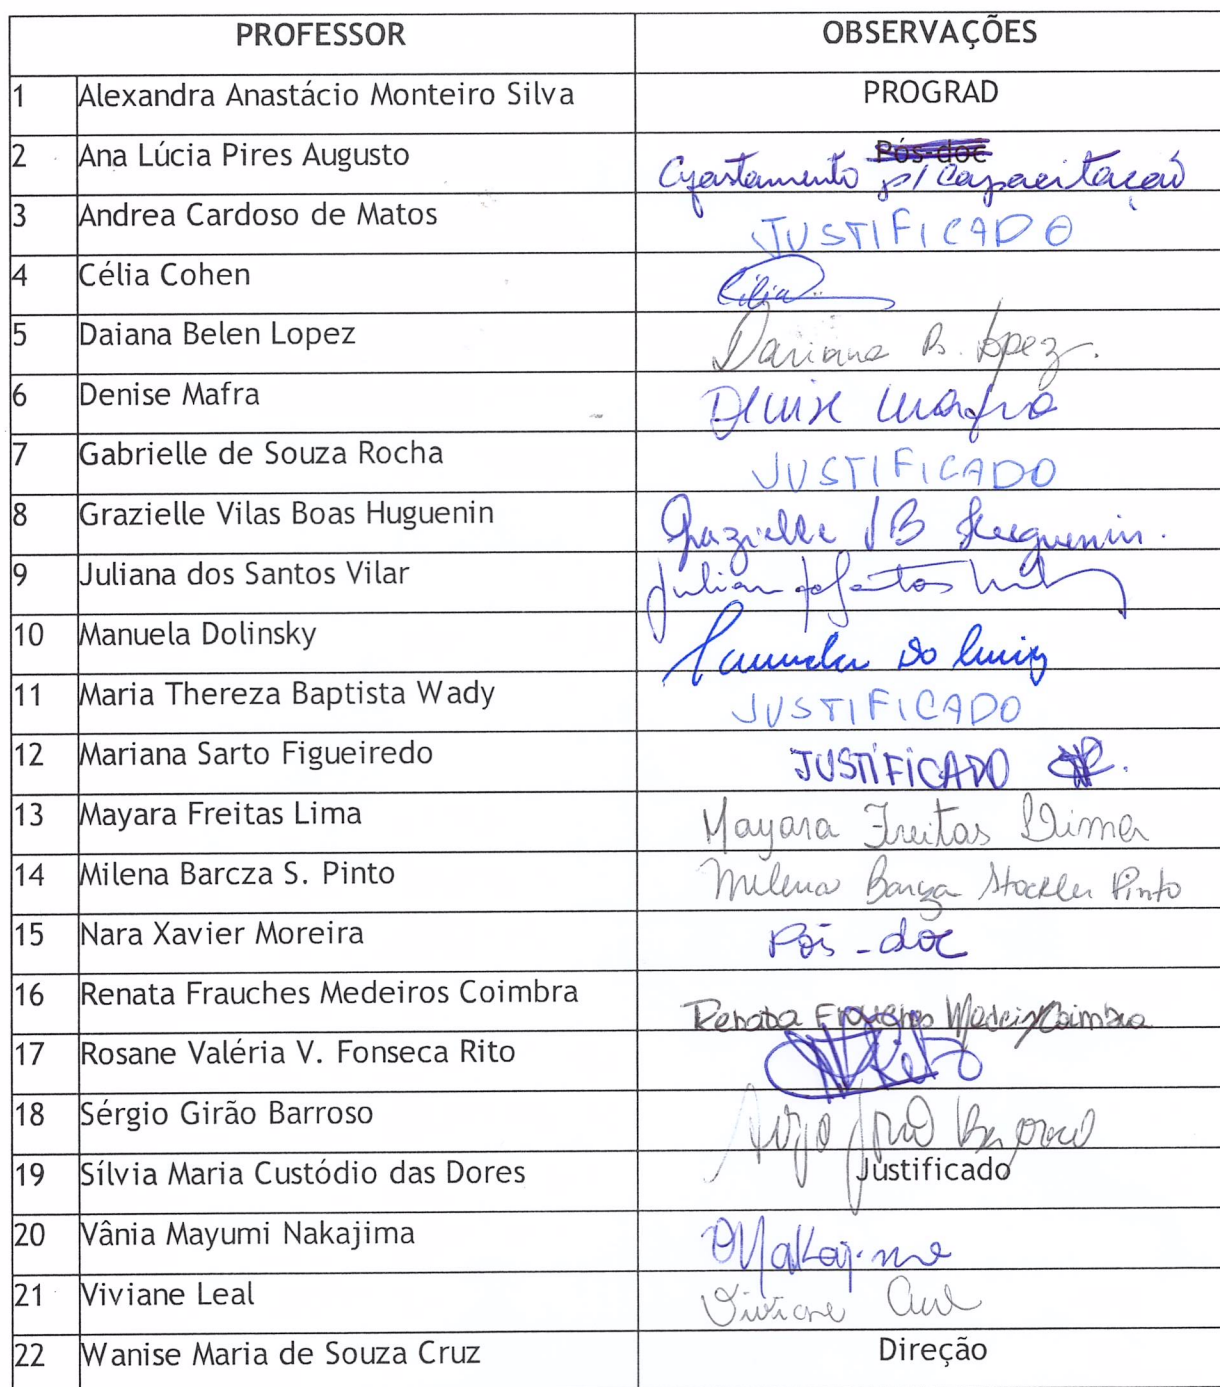 PROFESSOR OBSERVAÇÕES
1 Alexandra Anastácio Monteiro Silva PROGRAD
2 Ana Lúcia Pires Augusto Pós-doc Afastamento p/ capacitação
3 Andrea Cardoso de Matos JUSTIFICADO
4 Célia Cohen Célia
5 Daiana Belen Lopez Daiana B. Lopez.
6 Denise Mafra Denise Mafra
7 Gabrielle de Souza Rocha JUSTIFICADO
8 Grazielle Vilas Boas Huguenin Grazielle VB Huguenin.
9 Juliana dos Santos Vilar Juliana dos Santos Vilar
10 Manuela Dolinsky Manuela Dolinsky
11 Maria Thereza Baptista Wady JUSTIFICADO
12 Mariana Sarto Figueiredo JUSTIFICADO
13 Mayara Freitas Lima Mayara Freitas Lima
14 Milena Barcza S. Pinto Milena Barcza Stockler Pinto
15 Nara Xavier Moreira Pós-doc
16 Renata Frauches Medeiros Coimbra Renata Frauches Medeiros Coimbra
17 Rosane Valéria V. Fonseca Rito
18 Sérgio Girão Barroso Sérgio Girão Barroso
19 Sílvia Maria Custódio das Dores Justificado
20 Vânia Mayumi Nakajima Nakajima
21 Viviane Leal Viviane Leal
22 Wanise Maria de Souza Cruz Direção